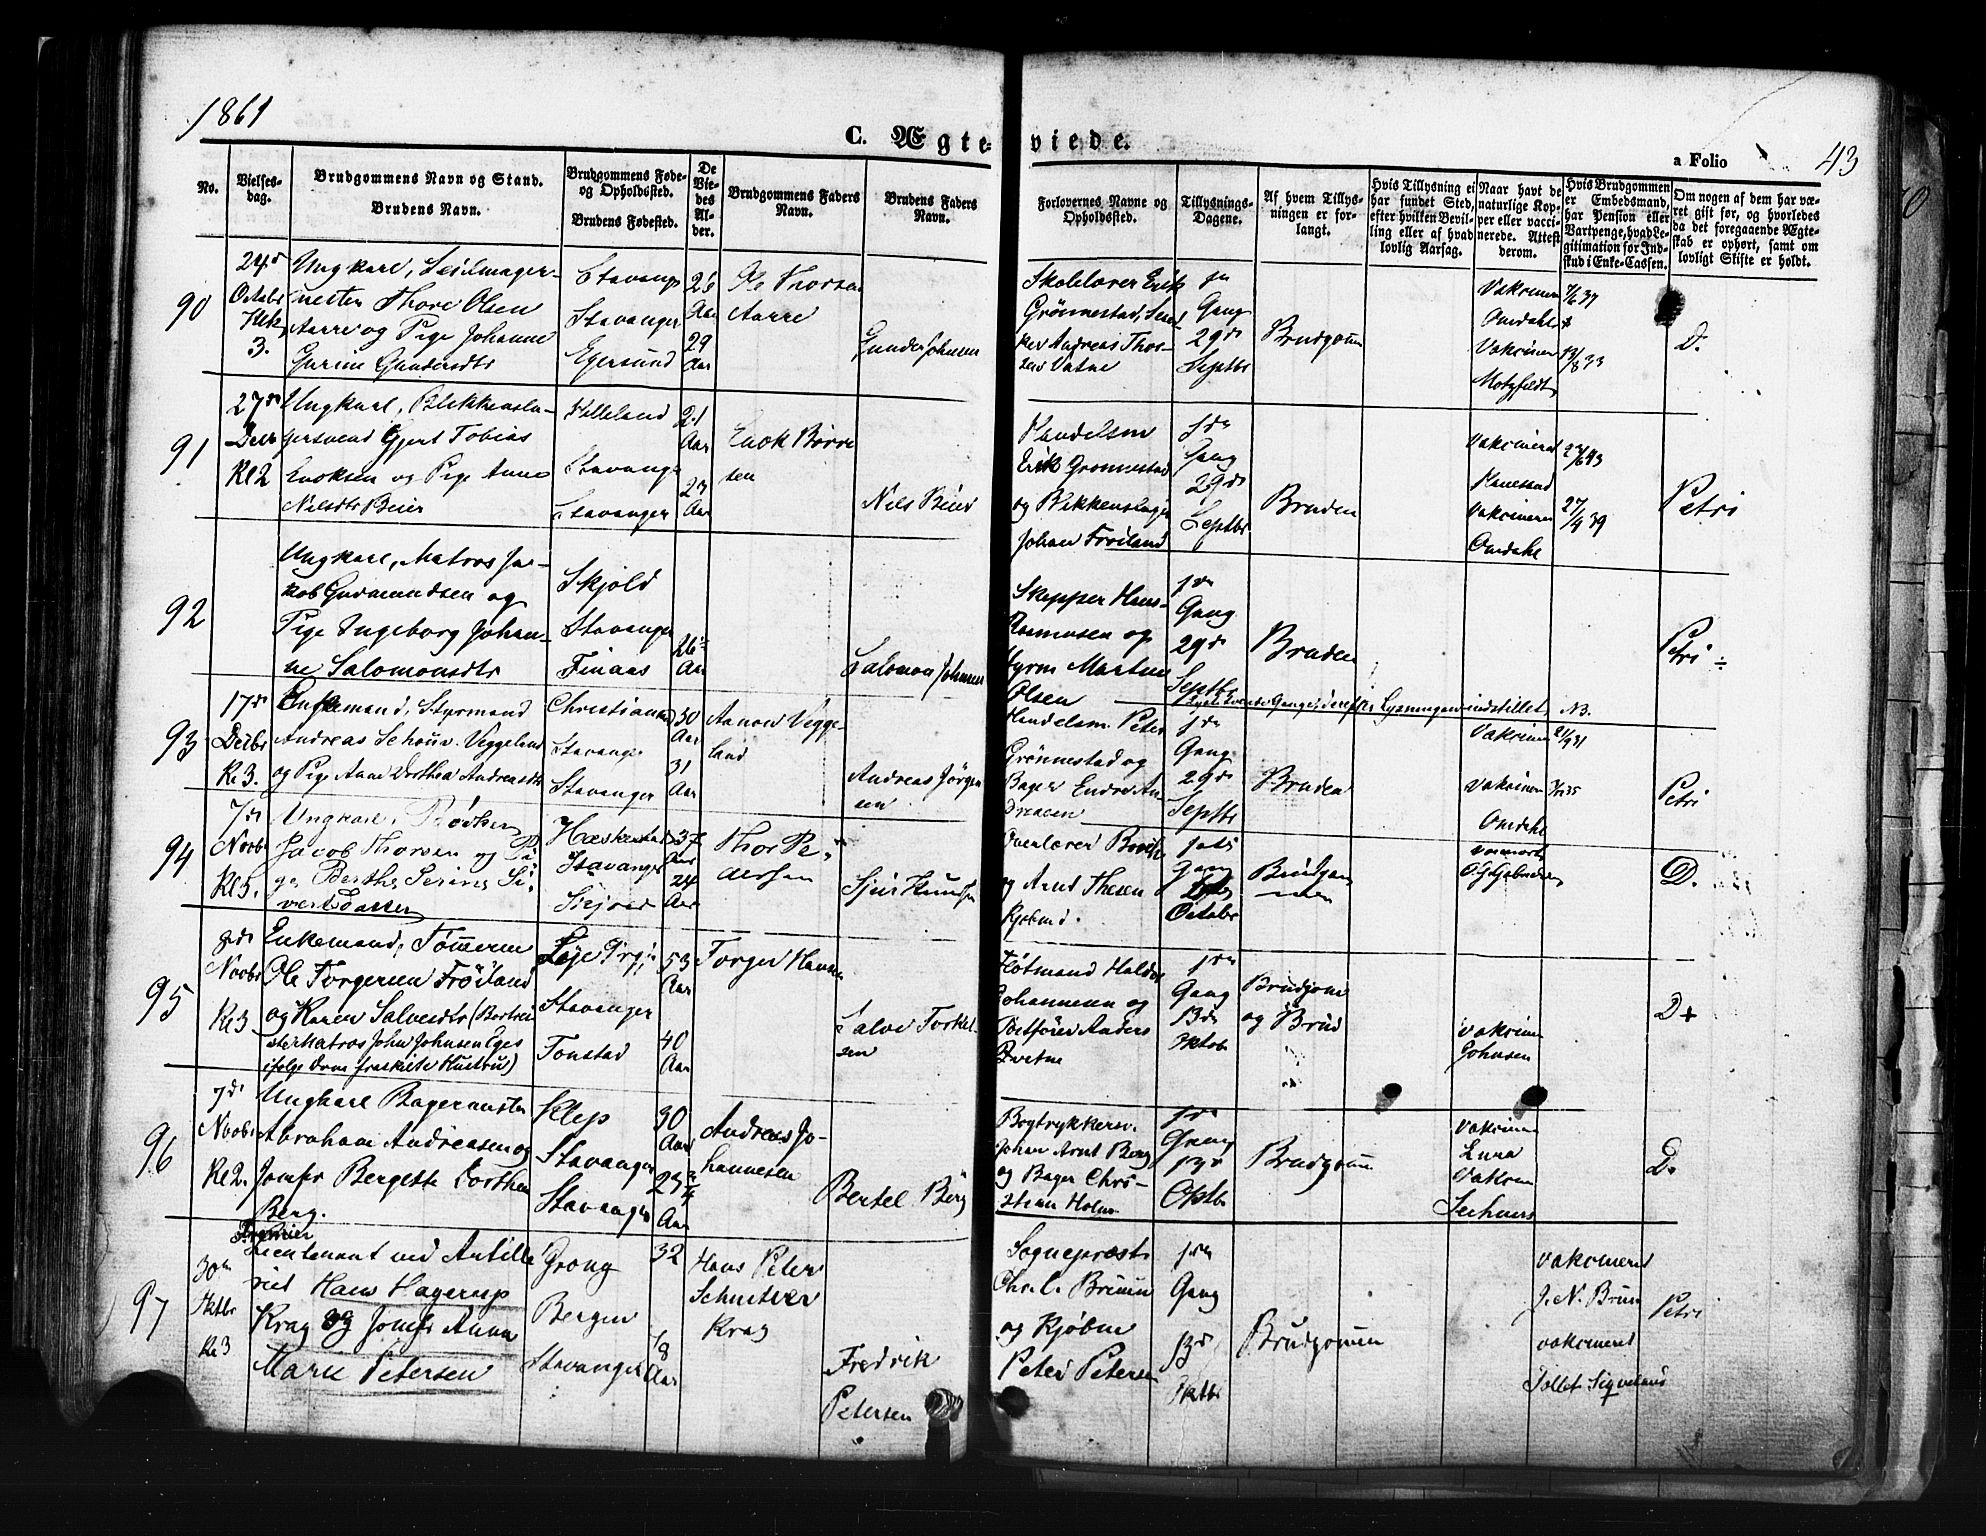 1861
C. Ægte-
viede.
a Folio
43
No.
Vielses-
dag.
Brudgommens Navn og Stand.
Brudens Navn.
Brudgommens Føde-
og Opholdssted.
Brudens Fødested.
De
Vie-
des
Al-
der.
Brudgommens Faders
Navn.
Brudens Faders
Navn.
Forlovernes Navne og
Opholdssted.
Tillysnings-
Dagene.
Af hvem Tillys-
ningen er for-
langt.
Hvis Tillysning ei
har fundet Sted,
efter hvilken Bevil-
ling eller af hvad
lovlig Aarsag.
Naar havt de
naturlige Kop-
per eller vacci-
nerede. Attest
derom.
Hvis Brudgommen
er Embedsmand,
har Pension eller
Vartpenge, hvad Le-
gitimation for Ind-
skud i Enke-Cassen.
Om nogen af dem har væ-
ret gift før, og hvorledes
da det foregaaende Ægte-
skab er ophørt, samt om
lovligt Skifte er holdt.
90
24de
Octobr
Klk
3.
Ungkarl, Seilmager-
mester Thore Olsen
Aarre og Pige Johanne
Gurine Gundersdtr
Stavanger
Stavanger
Egersund
Aar
29
Aar
Ole Thorsen
Aarre
Gunder Johnsen
Skolelærer Erik
Grønnestad,
Andreas Thor-
sen Vatne
1ste
Gang
29de
Septbr
Brudgom
Vakcineret
Omdahl
Vakcineret
Motzfeldt
D.
91
27de
Kl 2
Ungkarl, Blikkensla-
gersvend Gjert Tobias
Enoksen og Pige Anne
Nilsdtr Beier
Helleland
Stavanger
Stavanger
21
Aar
23
Aar
Enok Børre
sen
Nils Beier
Handelsm
Erik Grønnestad
og Blikkenslager
Johan Frøiland
Gang
29de
Septbr
Bruden
Vakcineret
Vakcineret
27/9 39
Omdahl
Petri
92
Ungkarl, Matros Ja-
kob Gudmundsen og
Pige Ingeborg Johan-
ne Salomonsdtr
Skjold
Stavanger
Finaas
26
Aar
Salomon Johnsen
Skipper Hans
Rasmusen og
Martin
Olsen
Gang
29de
Septbr
Bruden
Petri
Lysningen indstillet NB.
93
17de
Decbr
Kl 3.
Enkemand, Styrmand
Andreas Schouw Veggeland
og Pige Anne Dorthea Andreasdtr
Christiansand
Stavanger
Stavanger
30
Aar
31
Aar
Aanon Vegge-
land
Andreas Jørgen
sen
Handelsm. Peter
Grønnestad og
Bager Endre An-
dreasen
Gang
29de
Septbr
Bruden
Vakcineret
Vakcineret
Omdahl
Petri
94
7de
Novbr
Kl 5.
Ungkarl, Bødker
Jacob Thorsen og Pi-
ge Berthe Serine Si-
vertsdatter
Heskestad
Stavanger
Skjold
37
Aar
24
Aar
Thor Pe-
dersen
Sjur Knudsen
og Arnt Thesen
Kjøbmd.
Gang
Octobr
Brudgom
men
D.
95
Novbr
Kl 3
Enkemand, Tømmerm
Ole Torgersen Frøiland
og Karen Salvesdtr (Bortrei
ste Matros John Johnsen Eges
ifølge Dom fraskilte Hustru)
Stavanger
Tonstad
53
Aar
40
Aar
Torger Hansen
Salve Torkel
sen
Flotmand Halvor
Johannesen og
Postfører Anders
Tvetne
1ste
Gang
13de
Oktob
Brudgom
og Brud
Vakcineret
Johnsen
D +
96
7de
Novbr
Kl 2.
Ungkarl Bagermester
Abraham Andreasen og
Jomfr Bergette Dorthea
Berg.
Klep
Stavanger
Stavanger
30
Aar
23
Aar
Andreas Jo-
hannesen
Bertel Berg
Bogtrykkersv.
Johan Arnt Berg
og Bager Chri-
stian Holm
1ste
Gang
13de
Oktbr
Brudgom
Vakcineret
Lura
Vakcineret
D.
97
30te
Oktbr
Kl 3
Premier
Lieutenant ved Artille
riet Hans Hagerup
Krag og Jomfr Anna
Marie Petersen
Grong
Bergen
Stavanger
32
18
Aar
Hans Peter
Schnitler
Krag
Fredrik
Petersen
Sognepræst
Chr. C. Bruun
og Kjøbm
Peter Petersen
1ste
Gang
13de
Oktbr
Brudgommen
Vakcineret
J. N. Bruun
vakcineret
Tollef Sigveland
Petri